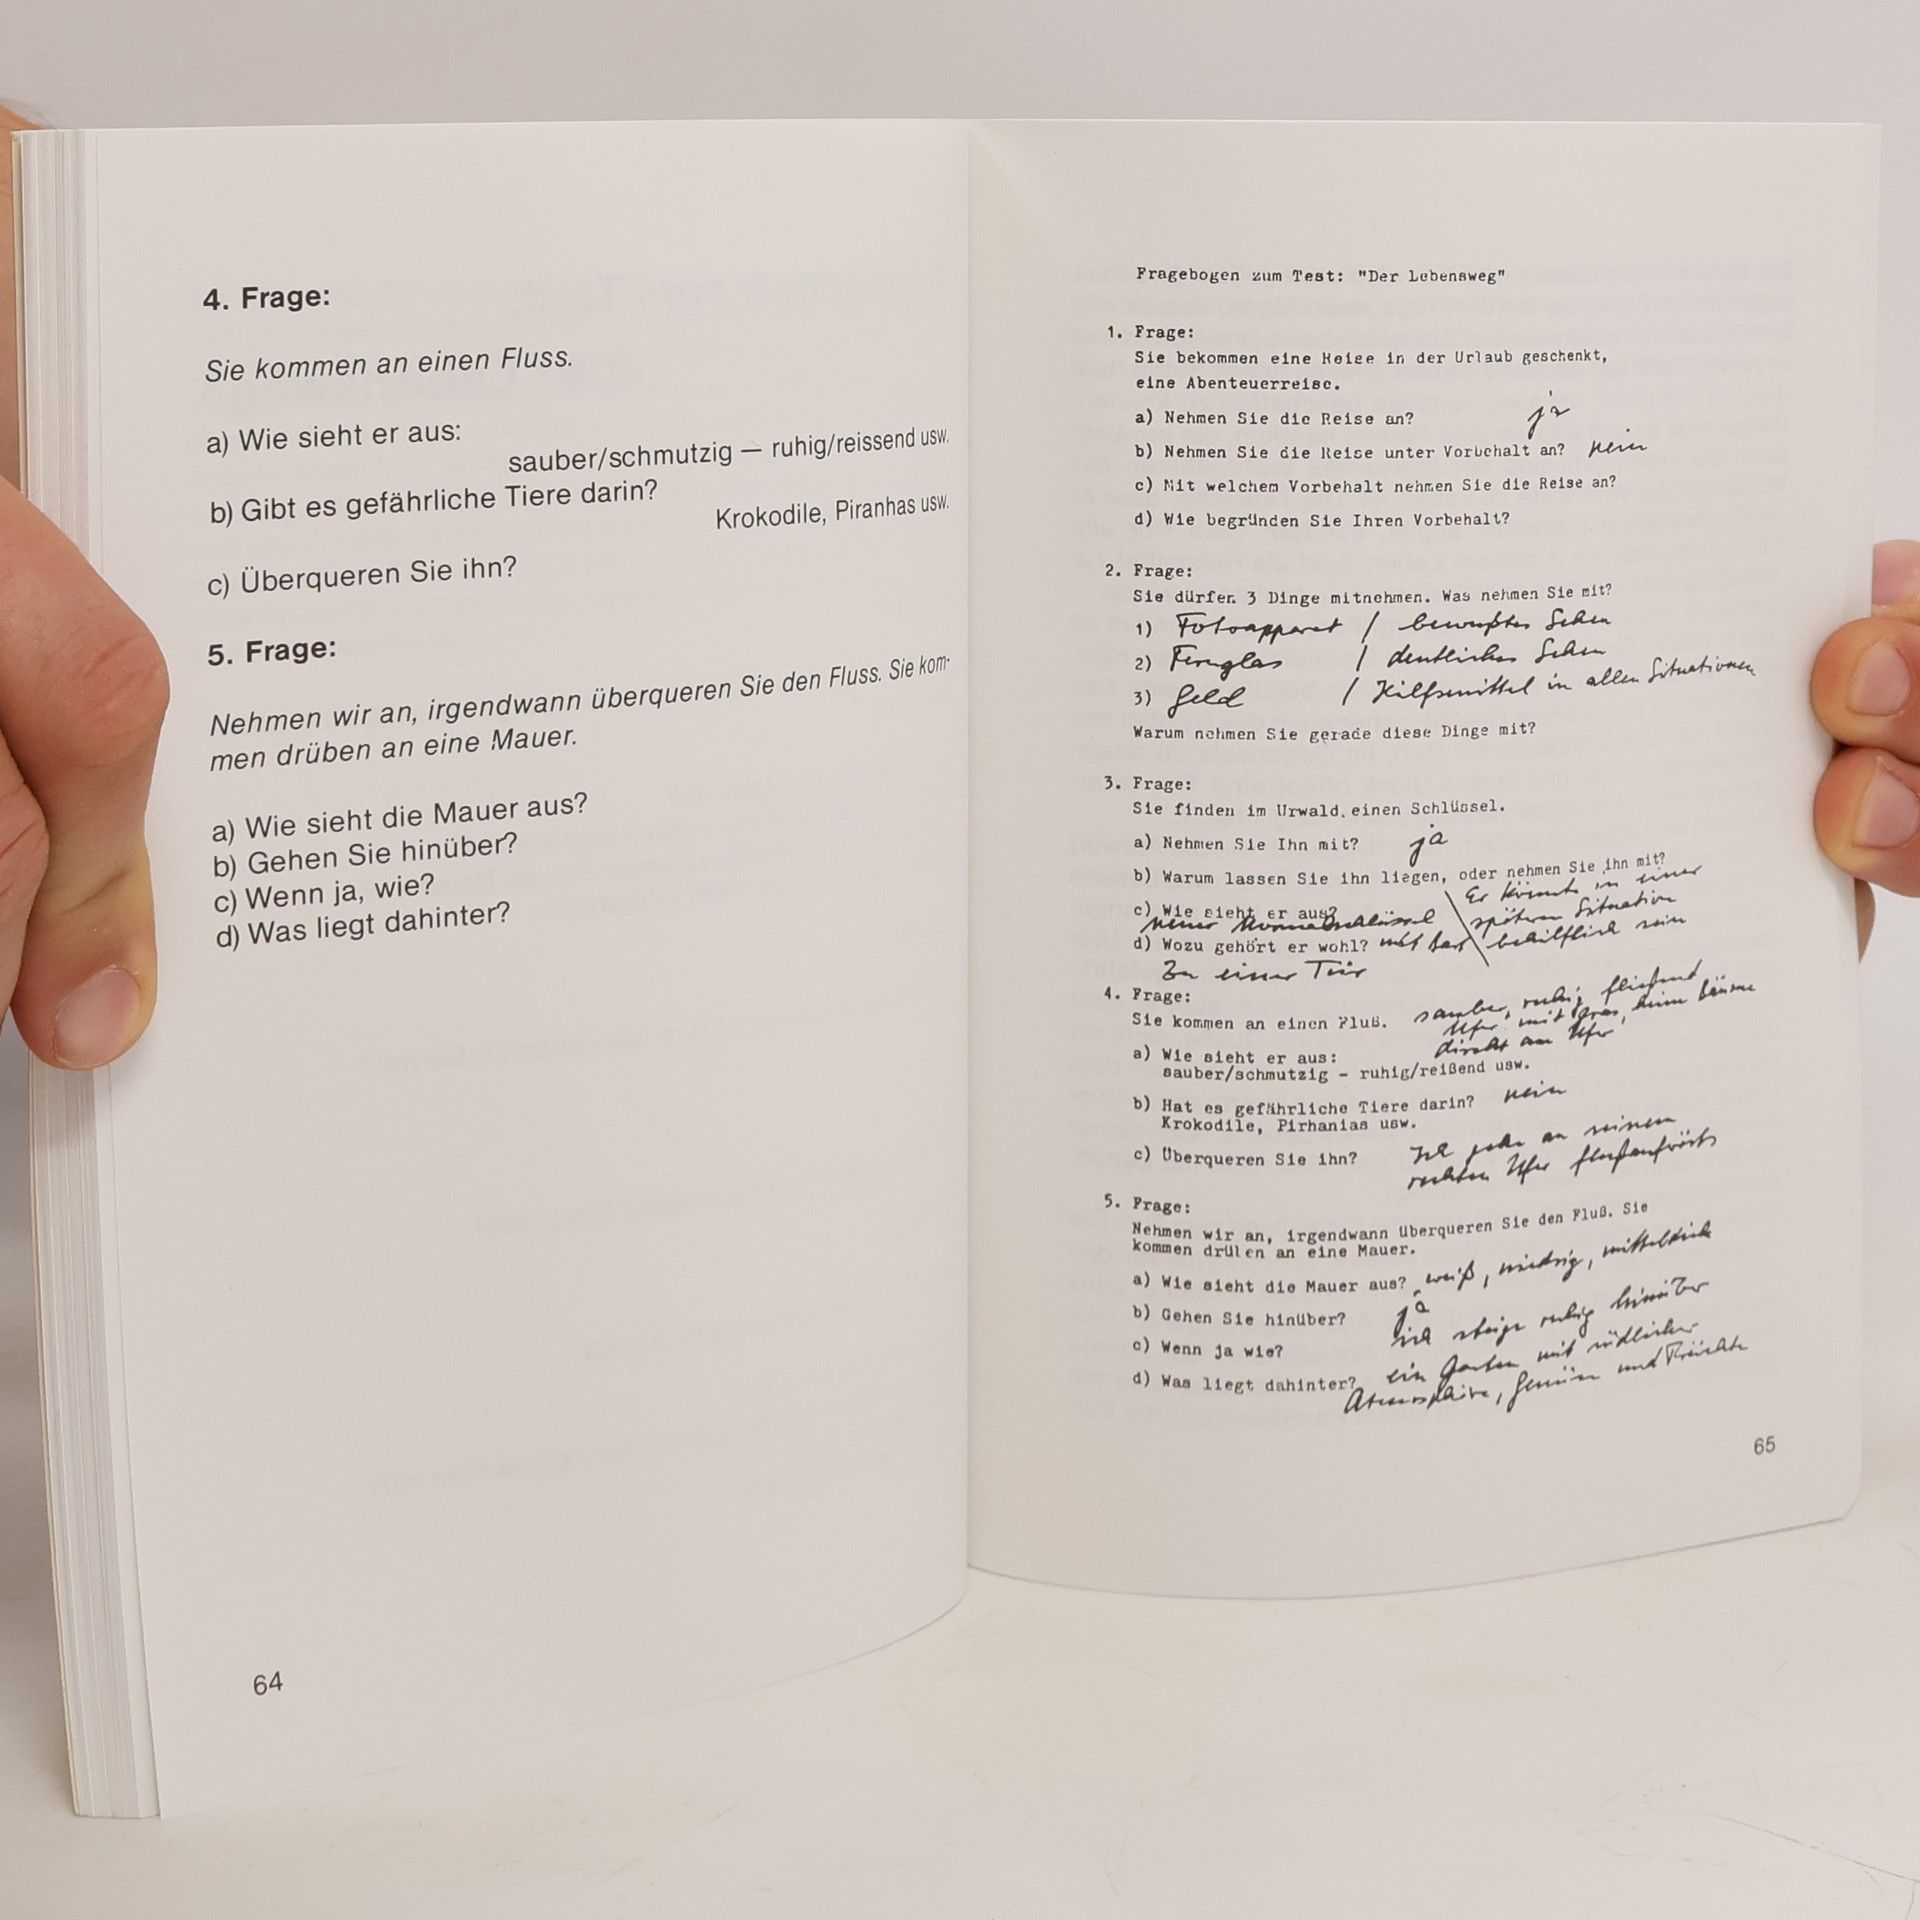 4. Frage:
Sie kommen an einen Fluss.
a) Wie sieht er aus:
sauber/schmutzig — ruhig/reissend usw.
b) Gibt es gefährliche Tiere darin?
Krokodile, Piranhas usw.
c) Überqueren Sie ihn?
5. Frage:
Nehmen wir an, irgendwann überqueren Sie den Fluss. Sie kom-
men drüben an eine Mauer.
a) Wie sieht die Mauer aus?
b) Gehen Sie hinüber?
c) Wenn ja, wie?
d) Was liegt dahinter?
64
Fragebogen zum Test: "Der Lebensweg"
1. Frage:
Sie bekommen eine Reise in der Urlaub geschenkt,
eine Abenteuerreise.
a) Nehmen Sie die Reise an? ja
b) Nehmen Sie die Reise unter Vorbehalt an? nein
c) Mit welchem Vorbehalt nehmen Sie die Reise an?
d) Wie begründen Sie Ihren Vorbehalt?
2. Frage:
Sie dürfen 3 Dinge mitnehmen. Was nehmen Sie mit?
1) Fotoapparat / bewußtes Sehen
2) Fernglas / deutliches Sehen
3) Geld / Hilfsmittel in allen Situationen
Warum nehmen Sie gerade diese Dinge mit?
3. Frage:
Sie finden im Urwald einen Schlüssel.
a) Nehmen Sie Ihn mit? ja
b) Warum lassen Sie ihn liegen, oder nehmen Sie ihn mit?
Er könnte in einer
späteren Situation
behilflich sein
c) Wie sieht er aus?
d) Wozu gehört er wohl?
Zu einer Tür
4. Frage:
Sie kommen an einen Fluß.
sauber, ruhig fließend
Ufer mit Gras, keine Bäume
direkt am Ufer
a) Wie sieht er aus:
sauber/schmutzig - ruhig/reißend usw.
b) Hat es gefährliche Tiere darin? nein
Krokodile, Pirhanias usw.
c) Überqueren Sie ihn? Ich gehe an seinem
rechten Ufer flußaufwärts
5. Frage:
Nehmen wir an, irgendwann überqueren Sie den Fluß. Sie
kommen drüben an eine Mauer.
a) Wie sieht die Mauer aus? weiß, niedrig, mitteldick
b) Gehen Sie hinüber? ja
c) Wenn ja wie? ich steige ruhig hinüber
d) Was liegt dahinter? ein Garten mit südlicher
Atmosphäre, Gemüse und Früchte
65